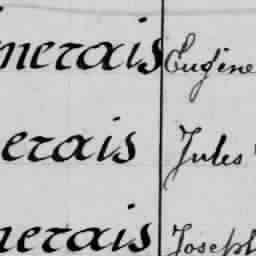 nerais Eugène
erais Jules
nerais Joseph